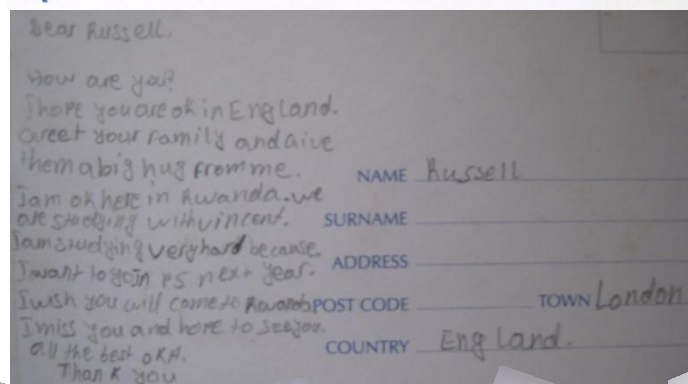 Dear Russell.
How are you?
I hope you are ok in England.
Greet your family and give
them a big hug from me.
I am ok here in Rwanda. we
are studying with vincent.
I am studying very hard because
I want to join P5 next year.
I wish you will come to Rwanda
I miss you and hope to see you.
all the best
Thank you
NAME Russell
SURNAME
ADDRESS
POST CODE TOWN London
COUNTRY England.